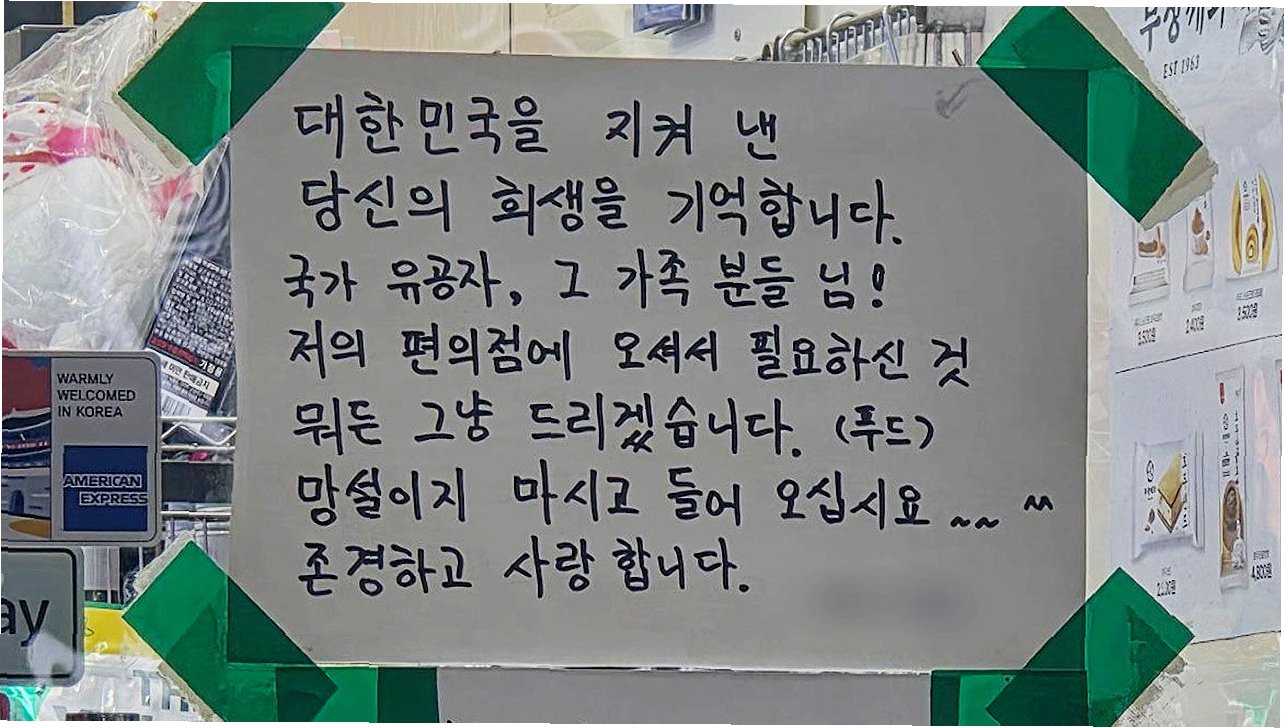 대한민국을 지켜 낸
당신의 희생을 기억합니다.
국가 유공자, 그 가족 분들 님!
저의 편의점에 오셔서 필요하신 것
뭐든 그냥 드리겠습니다. (푸드)
망설이지 마시고 들어 오십시요 ~~ ^^
존경하고 사랑합니다.
WARMLY
WELCOMED
IN KOREA
AMERICAN
EXPRESS
ay
부창제과
EST 1963
3,500원
2,400원
3,500원
4,800원